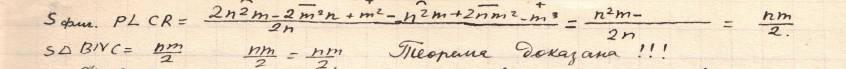 S фиг. PLCR = (2n²m - 2m²n + m³ - n²m + 2nm² - m³)/2n = (n²m -)/2n = nm/2.
S△ BNC = nm/2 nm/2 = nm/2 Теорема доказана !!!